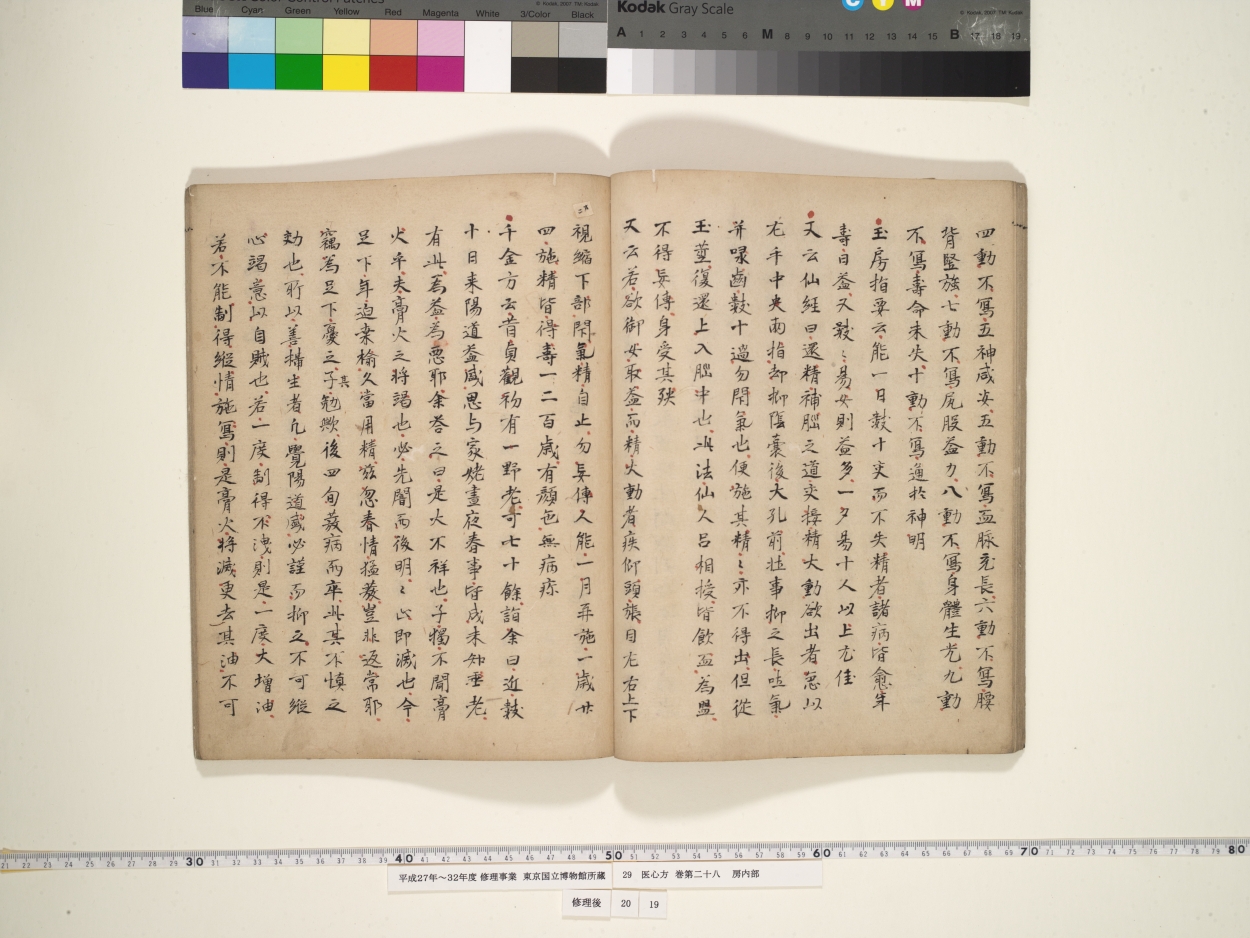 Blue Cyan Green Yellow Red Magenta White 3/Color Black
© Kodak, 2007 TM: Kodak
Kodak Gray Scale
C Y M
© Kodak, 2007 TM: Kodak
A 1 2 3 4 5 6 M 8 9 10 11 12 13 14 15 B 17 18 19
四動不寫五神咸安五動不寫血脈充長六動不寫腰
背堅強七動不寫尻股益力八動不寫身體生光九動
不寫壽命未失十動不寫通於神明
玉房指要云能一日數十交而不失精者諸病皆愈年
壽日益又數〻易女則益多一夕易十人以上尤佳
又云仙經曰還精補腦之道交接精大動欲出者急以
左手中央兩指却抑陰囊後大孔前壯事抑之長吐氣
并喙齒數十過勿閇氣也便施其精〻亦不得出但從
玉莖復還上入腦中也此法仙人呂相授皆飲血為盟
不得妄傳身受其殃
又云若欲御女取益而精大動者疾仰頭張目左右上下
視縮下部閇氣精自止勿妄傳人能一月再施一歲廿
四施精皆得壽一二百歲有顏色無病疹
千金方云昔貞觀初有一野老可七十餘詣余曰近數
十日來陽道益盛思与家姥晝夜春事皆成未知垂老
有此為益為惡耶余荅之曰是大不祥也子獨不聞膏
火乎夫膏火之將竭也必先闇而後明〻止即滅也今
足下年迫桒榆久當用精茲忽春情猛發豈非返常耶
竊為足下憂之子其勉歟後四旬發病而卒此其不慎之
効也所以善攝生者凡覺陽道盛必謹而抑之不可縱
心竭意以自賊也若一度制得不洩則是一度火增油
若不能制得縱情施寫則是膏火將滅更去其油不可
30 40 50 60 70 80
平成27年～32年度 修理事業 東京国立博物館所蔵
29 医心方 巻第二十八 房内部
修理後 20 19